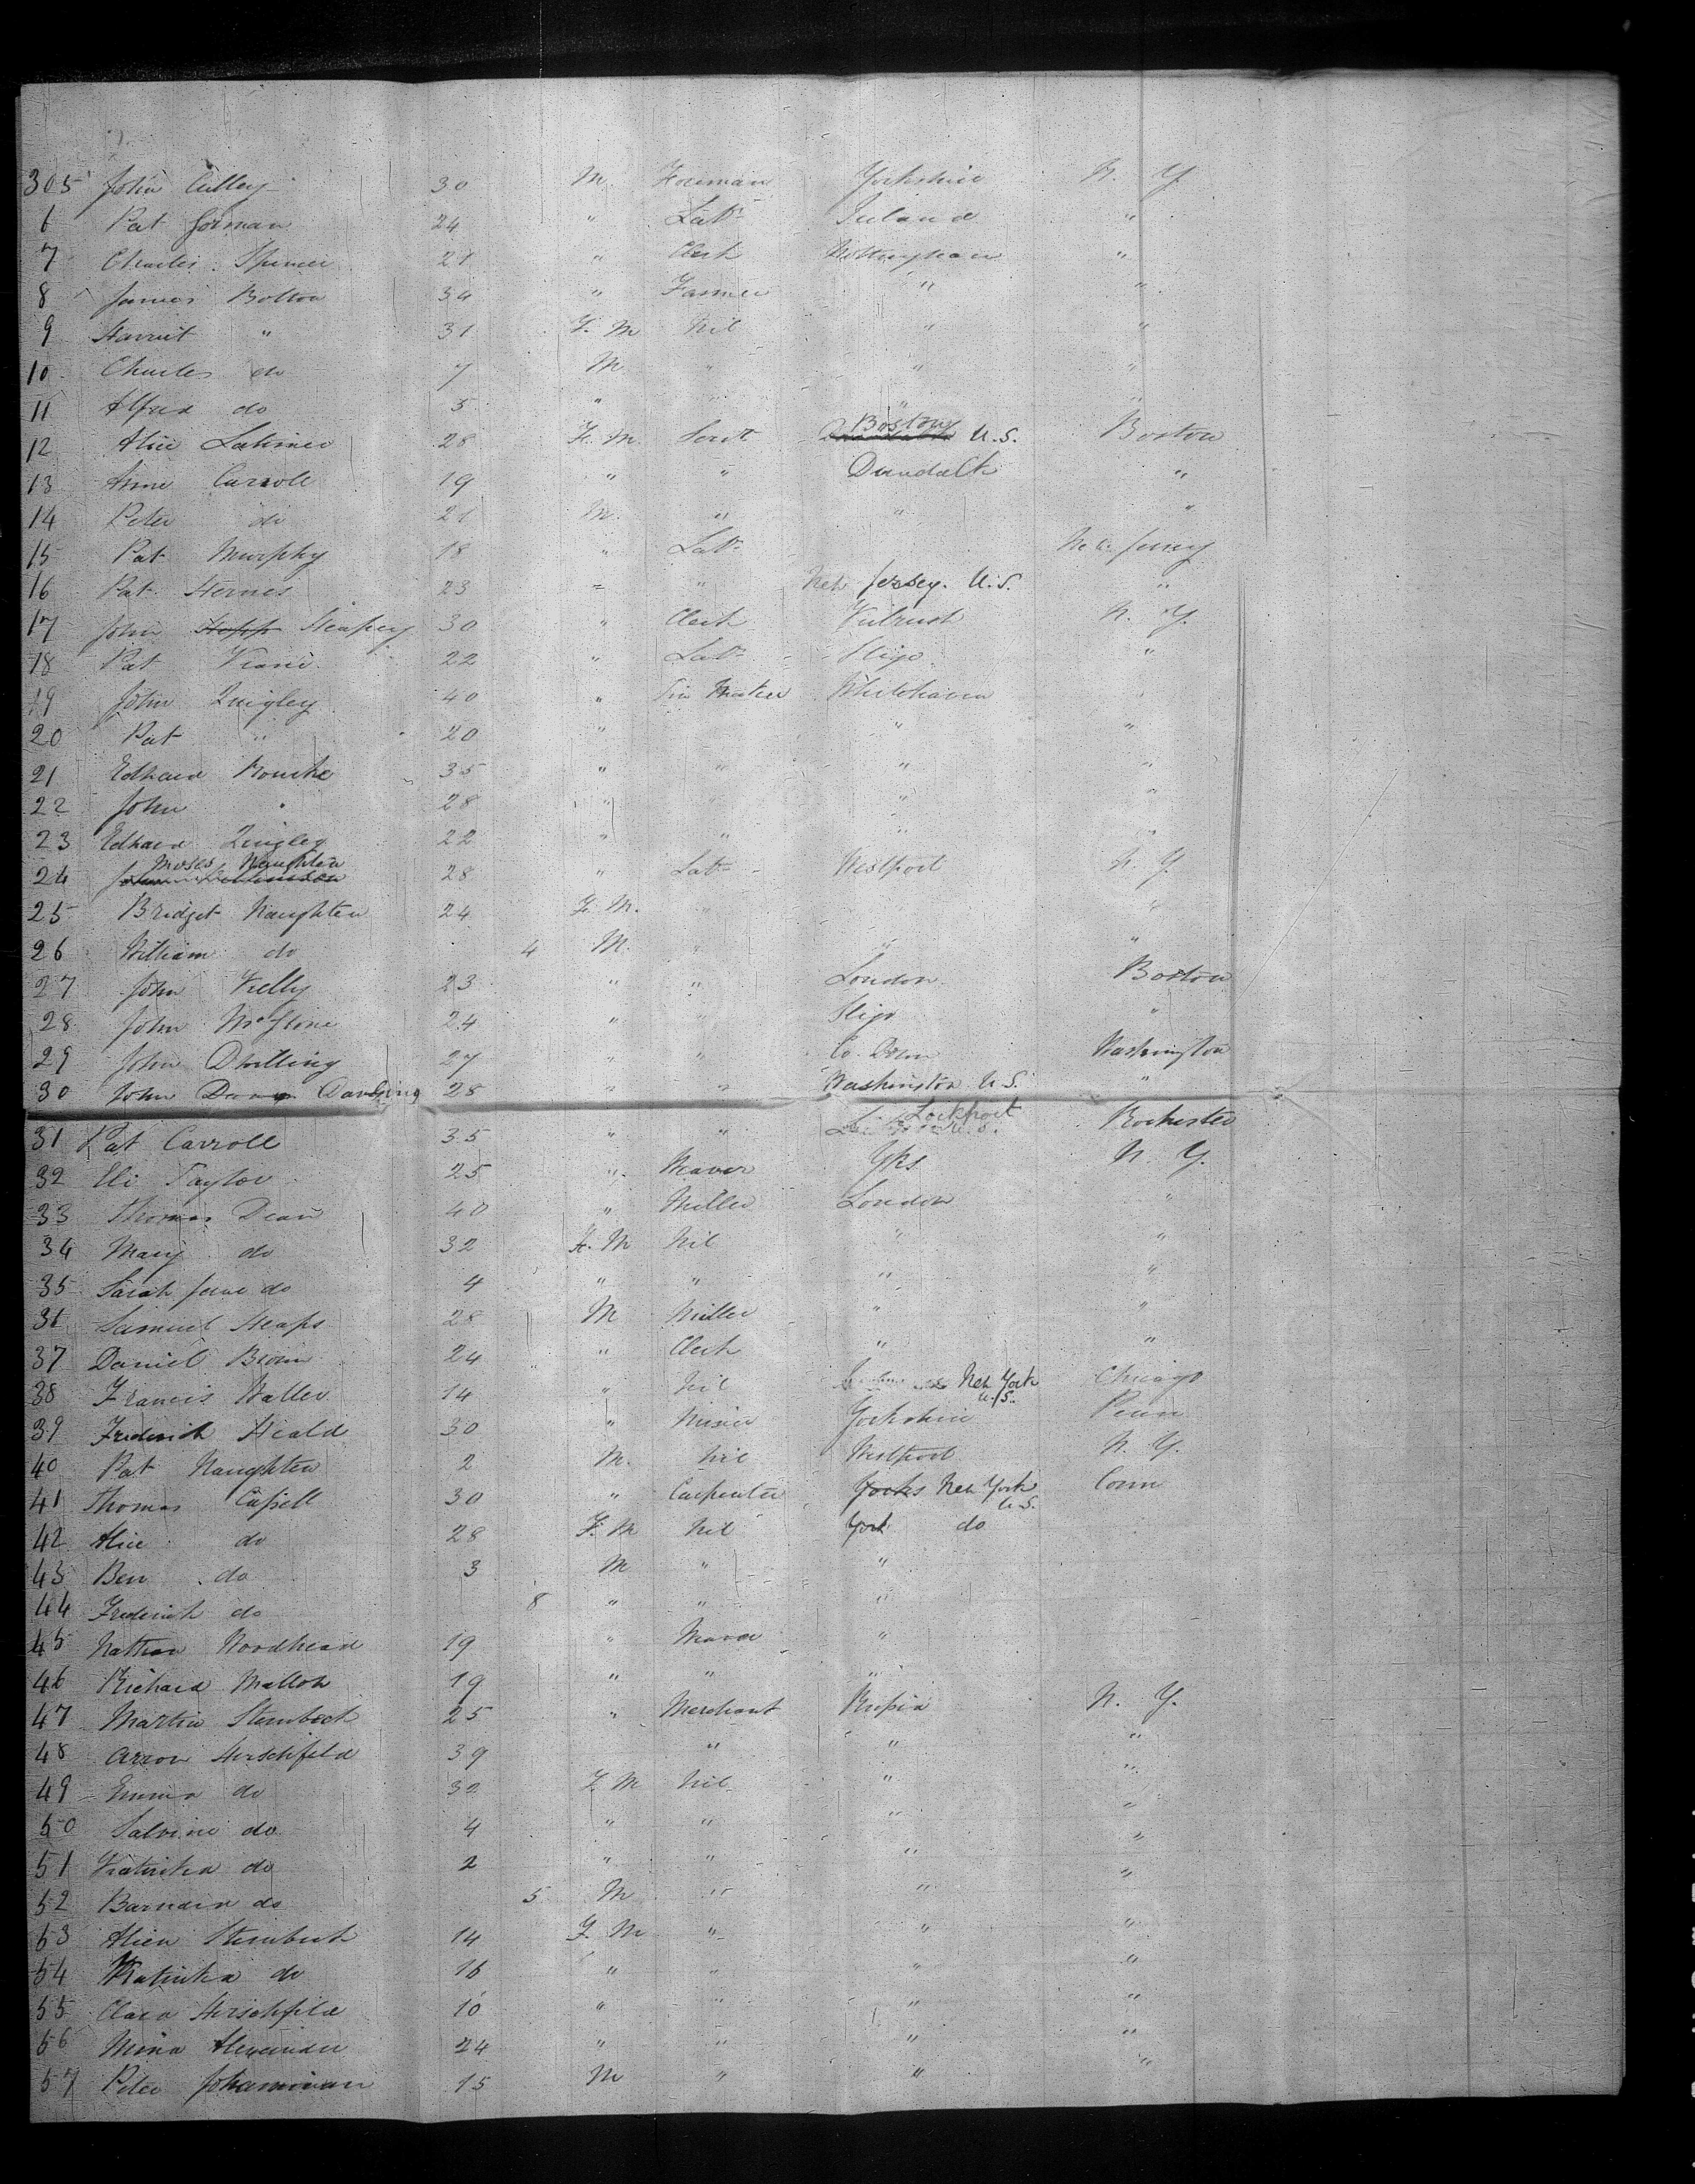 305 John Culley 30 M. Foreman Yorkshire N. Y.
6 Pat Gorman 24 " Labr Ireland "
7 Charles Spencer 21 " Clerk Nottingham "
8 James Bolton 34 " Farmer " "
9 Harriet " 31 F. M Nil " "
10 Charles do 7 M " " "
11 Alfred do 5 " " " "
12 Alice Latimer 28 F. M Servt Boston U.S. Boston
13 Anne Carroll 19 " " Dundalk "
14 Peter do 21 M. " " "
15 Pat Murphy 18 " Labr New Jersey
16 Pat Hernes 23 " " New Jersey. U.S. "
17 John Heapey 30 " Clerk N. Y.
18 Pat 22 " Labr Sligo "
19 John Quigley 40 " Tin Maker Whitehaven "
20 Pat " 20 " " "
21 Edward Rourke 35 " " " "
22 John " 28 " " " "
23 Edward Quigley 22 " " " "
24 Moses Naughten 28 " Labr Westport N. Y.
25 Bridget Naughten 24 F. M. " "
26 William do 4 M. " " "
27 John Kelly 23 " " London Boston
28 John 24 " " Sligo "
29 John Dowling 27 " " Co. Down Washington
30 John Dowling 28 " " Washington U.S. "
31 Pat Carroll 35 " " Lockport U.S. Rochester
32 Eli Taylor 25 " Weaver Yks N. Y.
33 Thomas Dean 40 " Miller London "
34 Mary do 32 F. M Nil " "
35 Sarah Jane do 4 " " " "
36 Samuel Heaps 28 M Miller " "
37 Daniel Brown 24 " Clerk " "
38 Francis Waller 14 " Nil New York U.S. Chicago
39 Frederick Heald 30 " Yorkshire Penn
40 Pat Naughten 2 M. Nil Westport N. Y.
41 Thomas 30 " Carpenter Yorks New York U.S. Conn
42 Alice do 28 F. M Nil York do
43 Ben do 3 M " "
44 Frederick do 8 " " "
45 Nathan Woodhead 19 " Weaver "
46 Richard 19 " " "
47 Martin Sternbeck 25 " Merchant N. Y.
48 Arron Herschfeld 39 " " "
49 Emma do 32 F. M Nil " "
50 Salvine do 4 " " " "
51 Katinka do 2 " " " "
52 do 5 M " " "
53 Sternbeck 14 F. M " " "
54 Katinka do 16 " " " "
55 Clara Herschfeld 10 " " " "
56 Mina Alexander 24 " " " "
57 Peter 15 M " " "